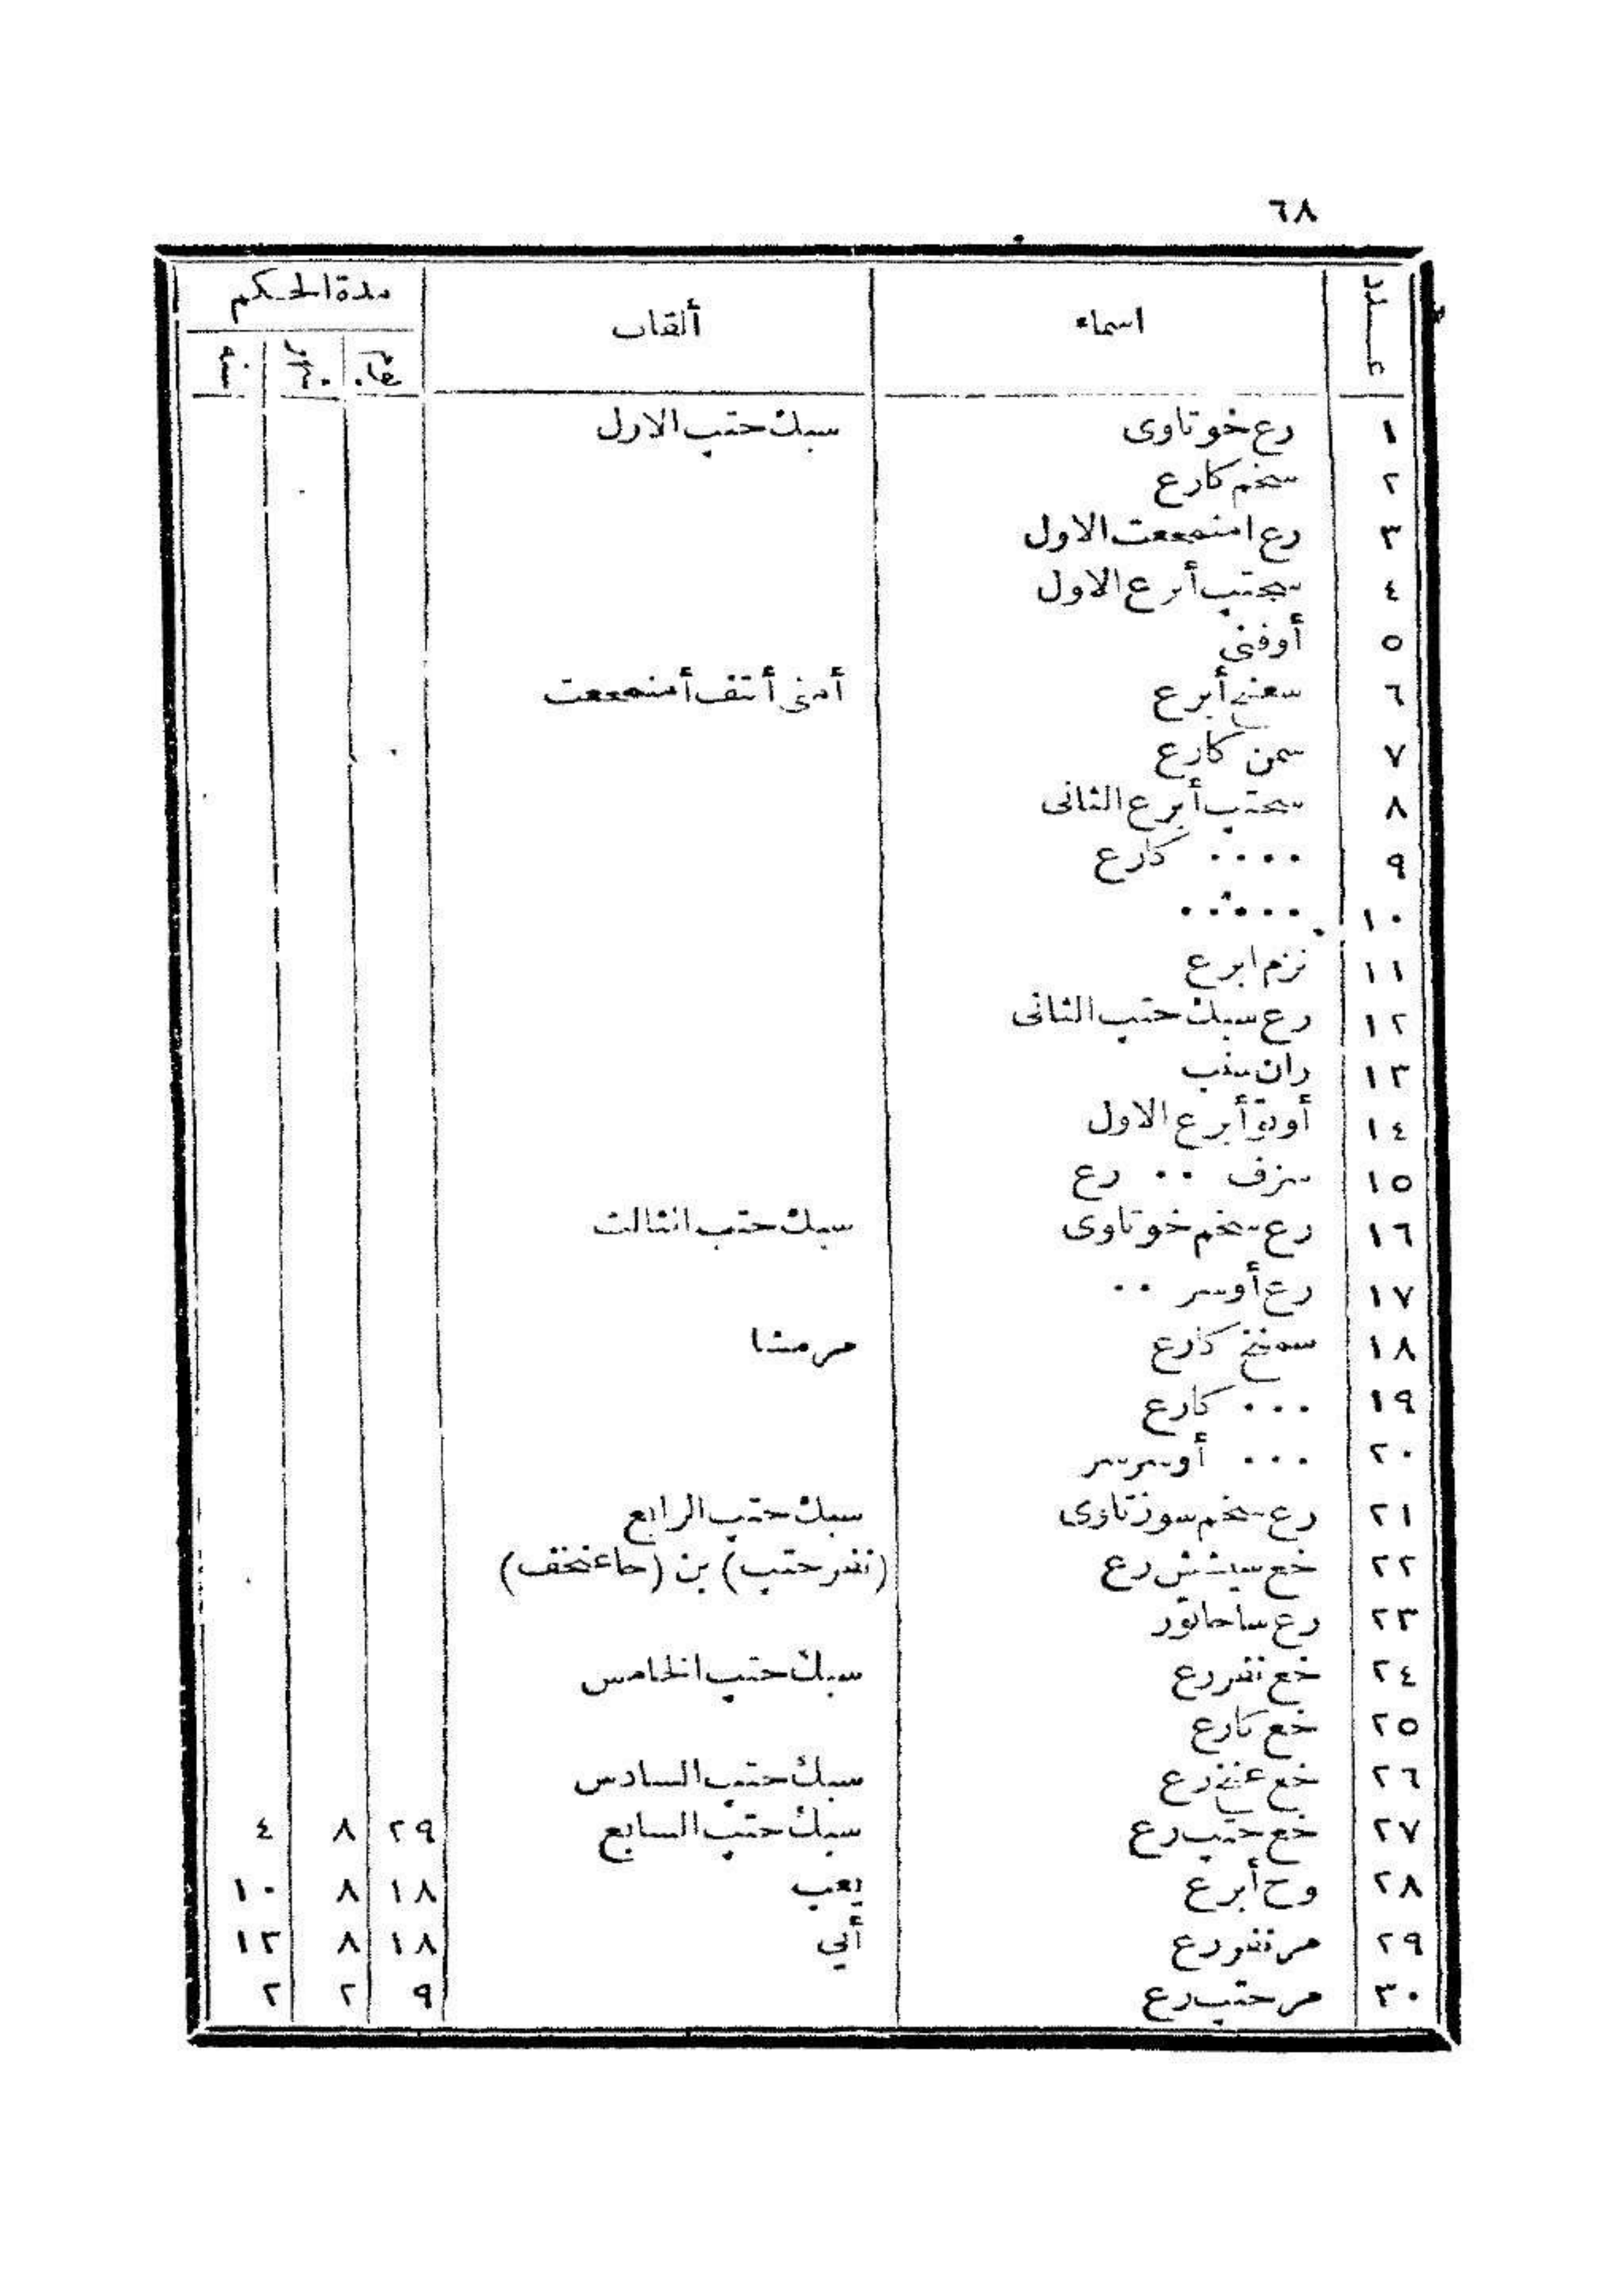 ٦٨
عدد اسماء ألقاب مدة الحكم
شهر سنة
١ رع خوتاوى سبك حتب الاول
٢ سخم كارع
٣ رع امنمععت الاول
٤ سحتب أبرع الاول
٥ أوفنى
٦ سعنخ أبرع أمنى أنتف أمنمععت
٧ سمن كارع
٨ سحتب أبرع الثانى
٩ ٠٠٠٠ كارع
١٠ ٠٠٠٠٠٠
١١ نزم ابرع
١٢ رع سبك حتب الثانى
١٣ ران سنب
١٤ أوتو أبرع الاول
١٥ سزف ٠٠ رع
١٦ رع سخم خوتاوى سبك حتب الثالث
١٧ رع أوسر ٠٠
١٨ سمنخ كارع مرمشا
١٩ ٠٠٠ كارع
٢٠ ٠٠٠ أوسرسر
٢١ رع سخم سوزتاوى سبك حتب الرابع
٢٢ خع سيشش رع (نفرحتب) بن (حاعنخف)
٢٣ رع ساحاتور
٢٤ خع نفررع سبك حتب الخامس
٢٥ خع كارع
٢٦ خع عنخ رع سبك حتب السادس
٢٧ خع حتب رع سبك حتب السابع ٢٩ ٨ ٤
٢٨ وح أبرع يعب ١٨ ٨ ١٠
٢٩ مرنفررع أبي ١٨ ٨ ١٣
٣٠ مرحتب رع ٩ ٢ ٢